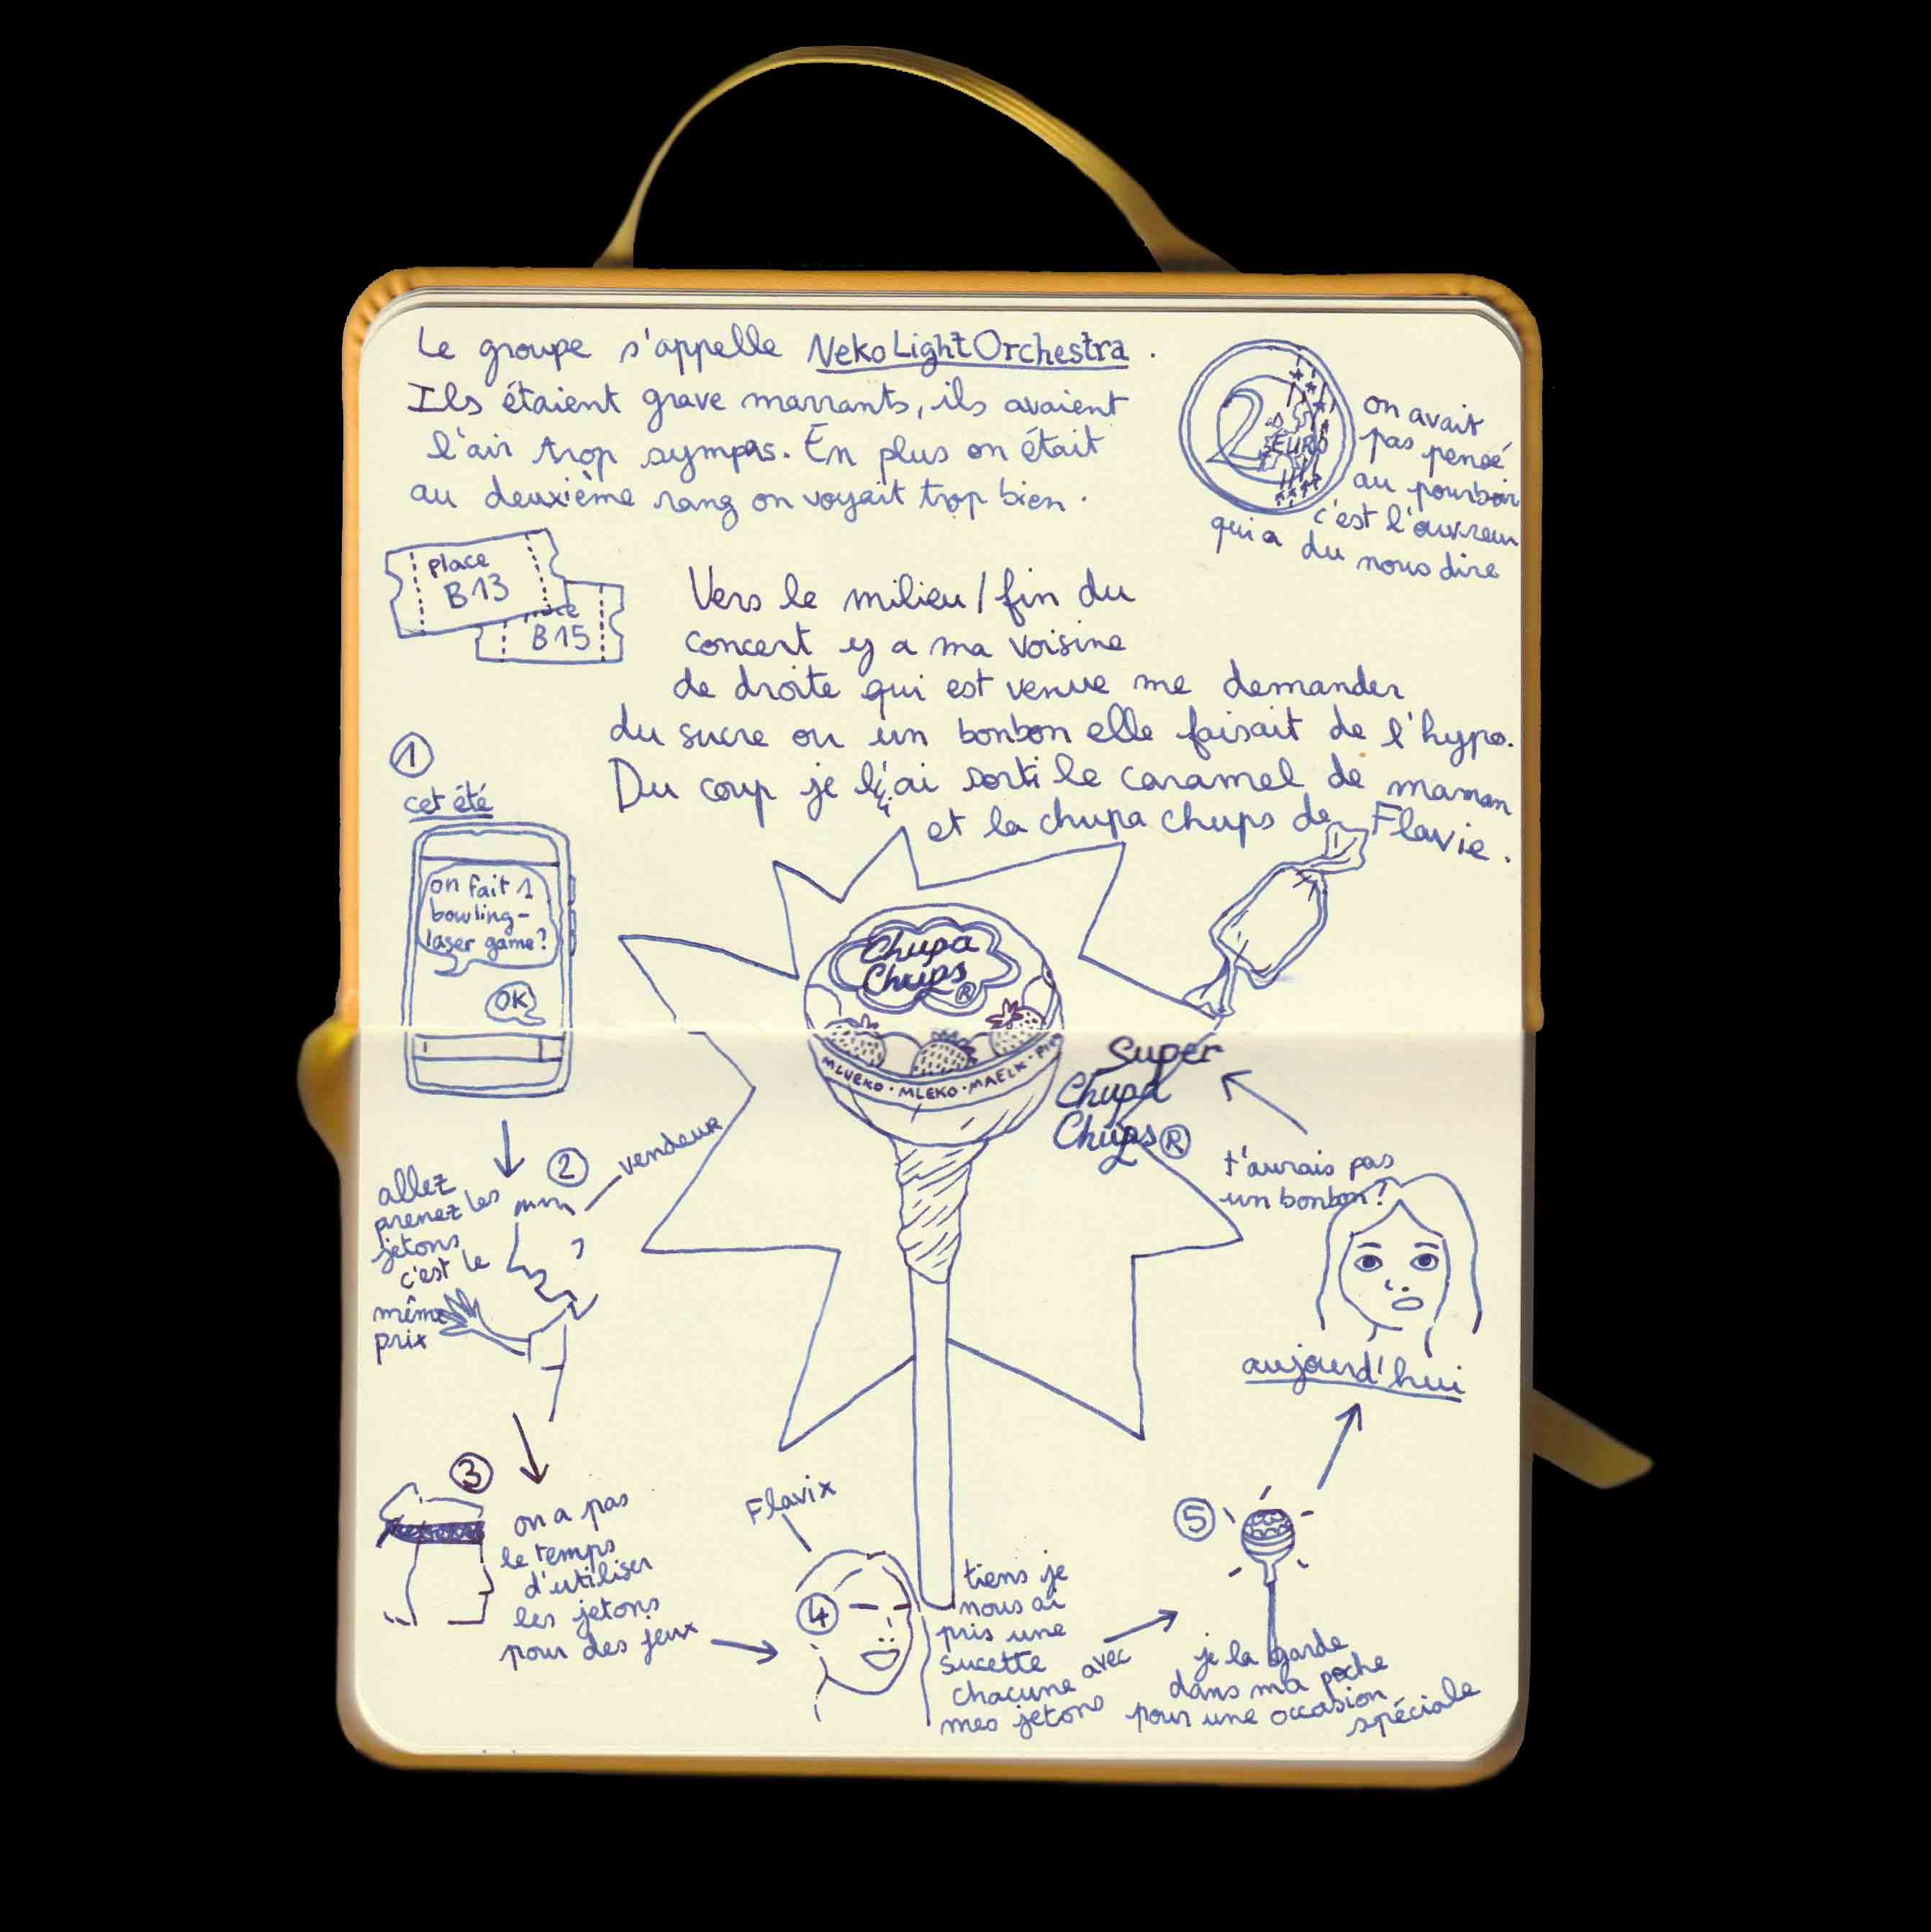 Le groupe s'appelle NekoLightOrchestra.
Ils étaient grave marrants, ils avaient
l'air trop sympas. En plus on était
au deuxième rang on voyait trop bien.
2
EURO
on avait
pas pensé
au pourboir
c'est l'ouvreur
qui a du nous dire
place
B13
B15
Vers le milieu/fin du
concert y a ma voisine
de droite qui est venue me demander
du sucre ou un bonbon elle faisait de l'hypo.
Du coup je l'ai sorti le caramel de maman
et la chupa chups de Flavie.
1
cet été
on fait 1
bowling-
laser game?
OK
Chupa
Chups®
MLUEKO · MLEKO · MAELK ·
Super
Chupa
Chups®
t'aurais pas
un bonbon?
aujourd'hui
2
vendeur
allez
prenez les
jetons
c'est le
même
prix
3
on a pas
le temps
d'utiliser
les jetons
pour des jeux
Flavix
4
tiens je
nous ai
pris une
sucette
chacune avec
mes jetons
5
je la garde
dans ma poche
pour une occasion
spéciale